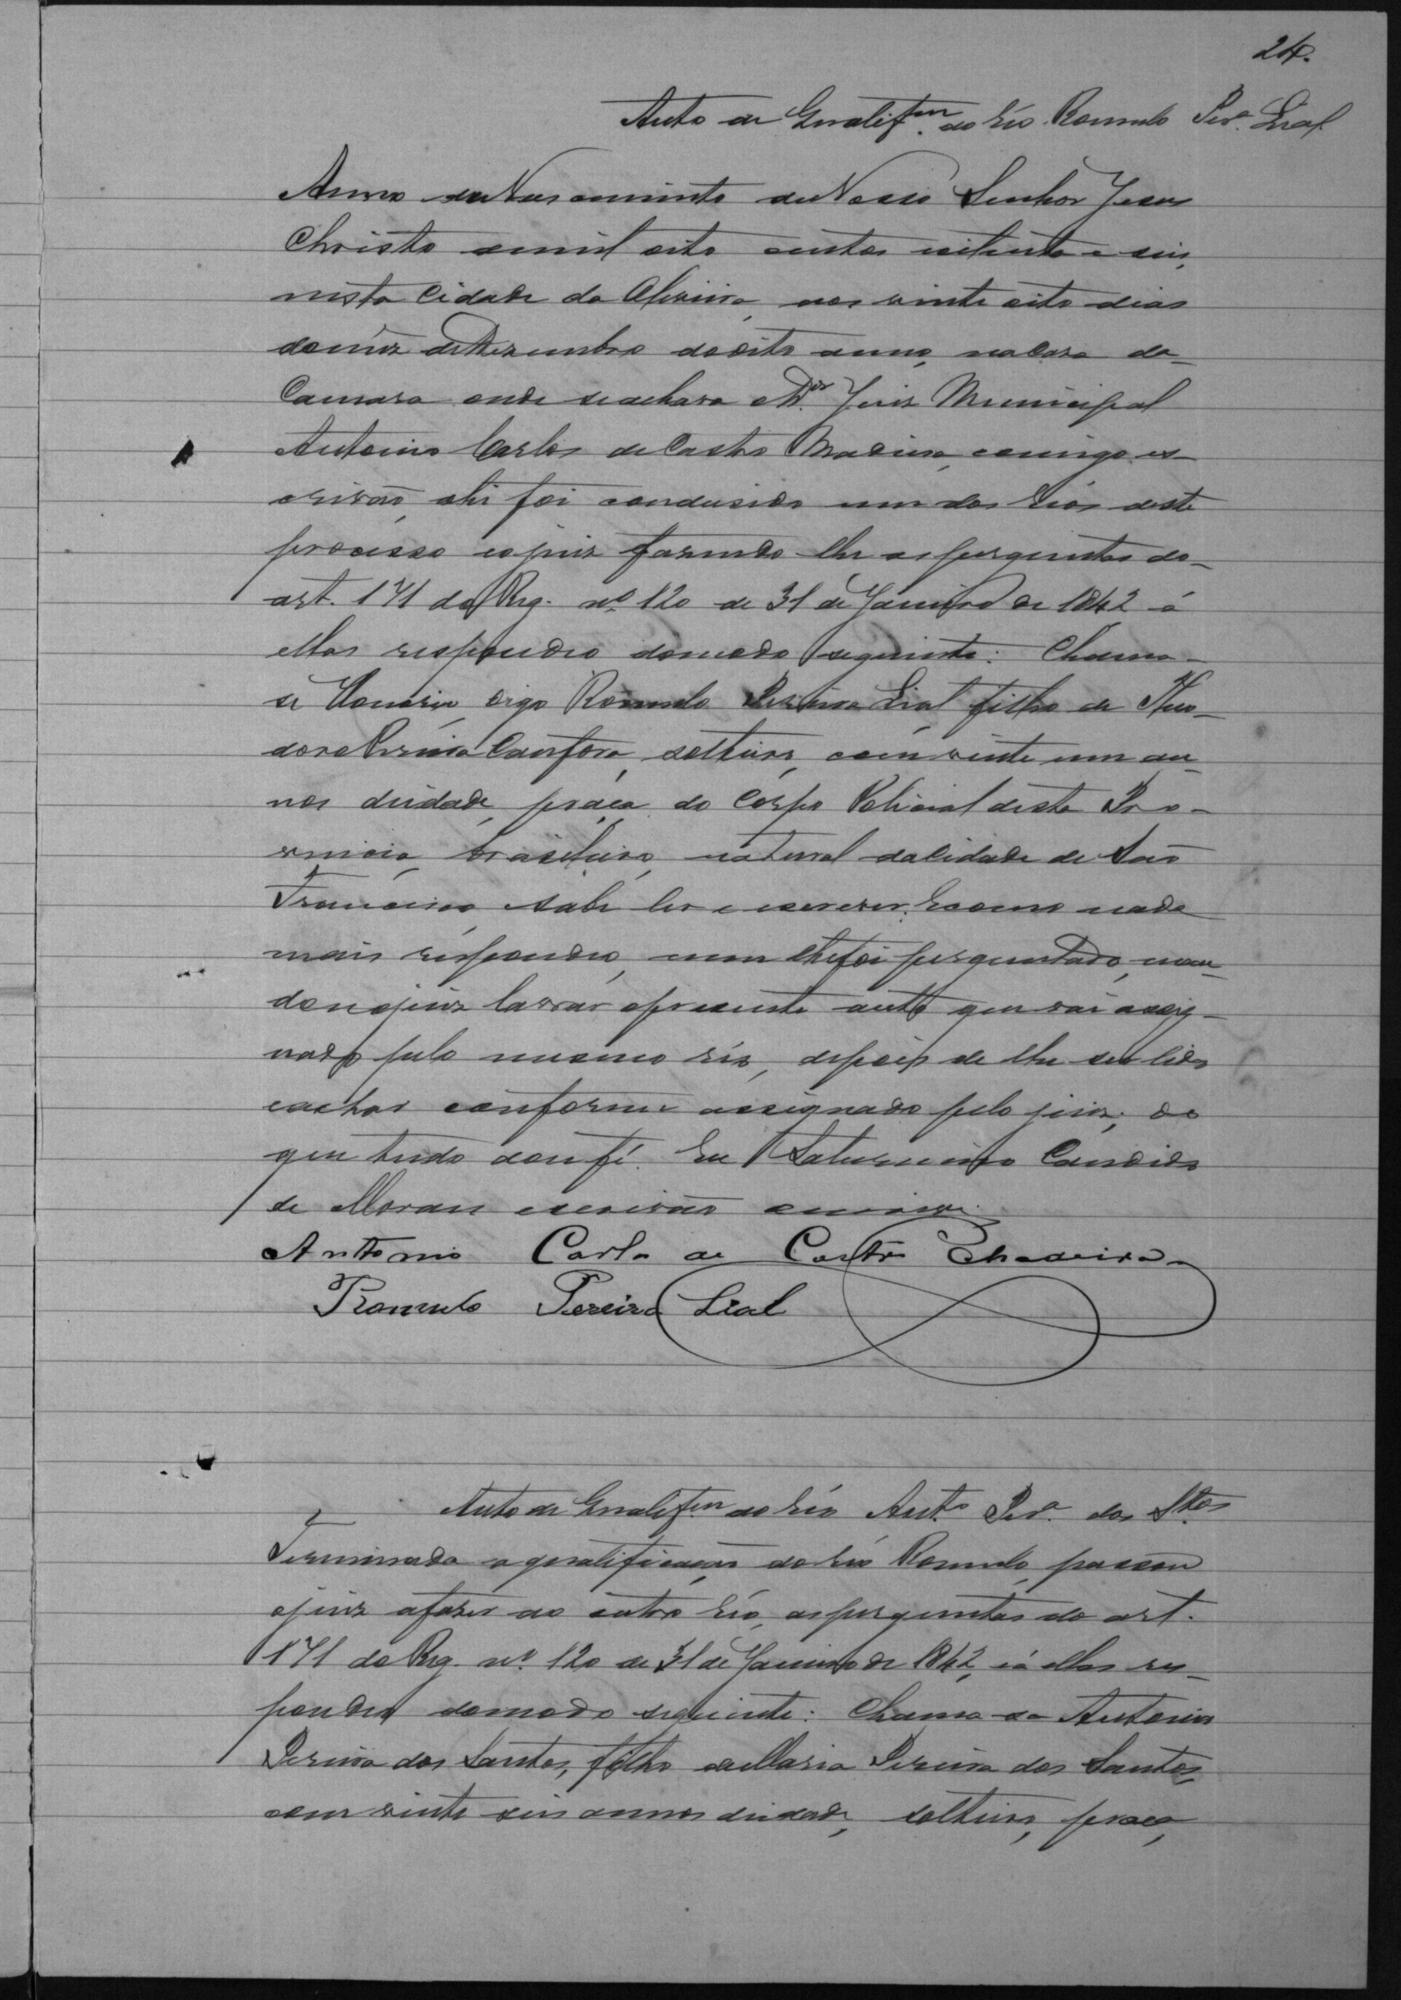 24.
Auto de Qualif.am do réo Romulo Per.a Leal
Anno do Nascimento de Nosso Senhor Jesus
Christo de mil oito centos oitenta e seis,
nesta Cidade da Oliveira, aos vinte oito dias
do mez de Dezembro do dito anno, na casa da
Camara onde se achava o D.or Juiz Municipal
Antonio Carlos de Castro Madeira, comigo es-
crivão, ahi foi conduzido um dos réos deste
processo e o juiz fazendo lhe as perguntas do
art. 171 do Reg. nº 120 de 31 de Janeiro de 1842 á
ellas respondeo do modo seguinte: Chama-
se digo Romulo Pereira Leal filho de Theo-
doro Pereira Canfora, solteiro, com vinte um an-
nos de idade, praça do Corpo Policial desta Pro-
vincia, brasileiro, natural da cidade de São
Francisco sabe ler e escrever. E como nada
mais respondeo, nem lhe foi perguntado, man-
dou o juiz lavrar o presente auto que vai assig-
nado pelo mesmo réo, depois de lhe ser lido
e achar conforme assignado pelo juiz; do
que tudo dou fé. Eu Saturnino Candido
de Moraes escrivão escrevi.
Antonio Carlos de Castro Madeira
Romulo Pereira Leal
Auto de Qualif.am do réo Ant.o Per.a dos S.tos
Terminada a qualificação do réo Romulo, passou
o juiz a fazer ao outro réo, as perguntas do art.
171 do Reg. nº 120 de 31 de Janeiro de 1842, e á ellas res-
pondeo do modo seguinte: Chama-se Antonio
Pereira dos Santos, filho de Maria Pereira dos Santos,
com vinte seis annos de idade, solteiro, praça,